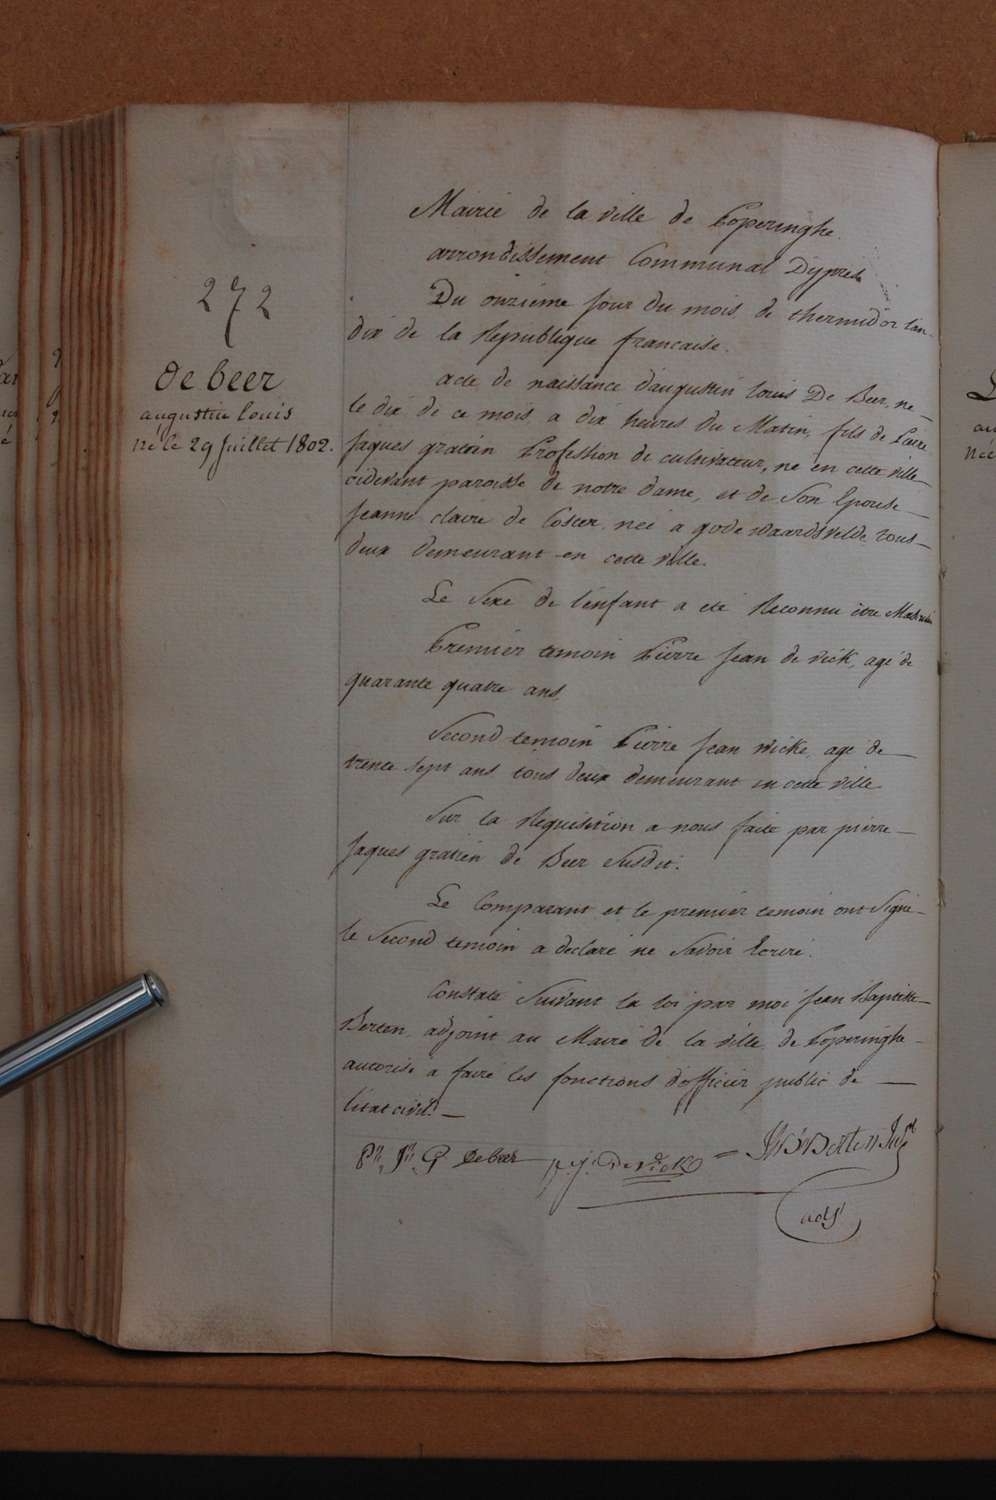 272
De beer
augustin louis
né le 29 Juillet 1802.
Mairie de la ville de Poperinghe
arrondissement Communal D'ypres
Du onzieme jour du mois de thermidor l'an
dix de la Republique francaise.
acte de naissance d'augustin louis De Beer, ne
le dix de ce mois a dix heures du Matin, fils de Pierre
Jaques gratien Profession de cultivateur, né en cette ville
cidevant paroisse de notre dame, et de Son Epouse
Jeanne claire de Coster, neé a godewaardsvelde tous
deux demeurant en cette ville.
Le Sexe de l'enfant a eté Reconnu etre Masculin
Premier temoin Pierre Jean de vick, agé de
quarante quatre ans,
Second temoin Pierre Jean vicke, agé de
trente sept ans tous deux demeurant en cette ville
Sur la Requisition a nous faite par pierre
Jaques gratien de Beer Susdit.
Le Comparant et le premier temoin ont Signé
le Second temoin a declaré ne Savoir Ecrire.
Constaté Suivant la loi par moi Jean Baptiste
Berten adjoint au Maire de la ville de Poperinghe
autorisé a faire les fonctions d'officier public de
l'etat civil.
Pre Jn G Debeer p. j. De vick JB Berten
adj